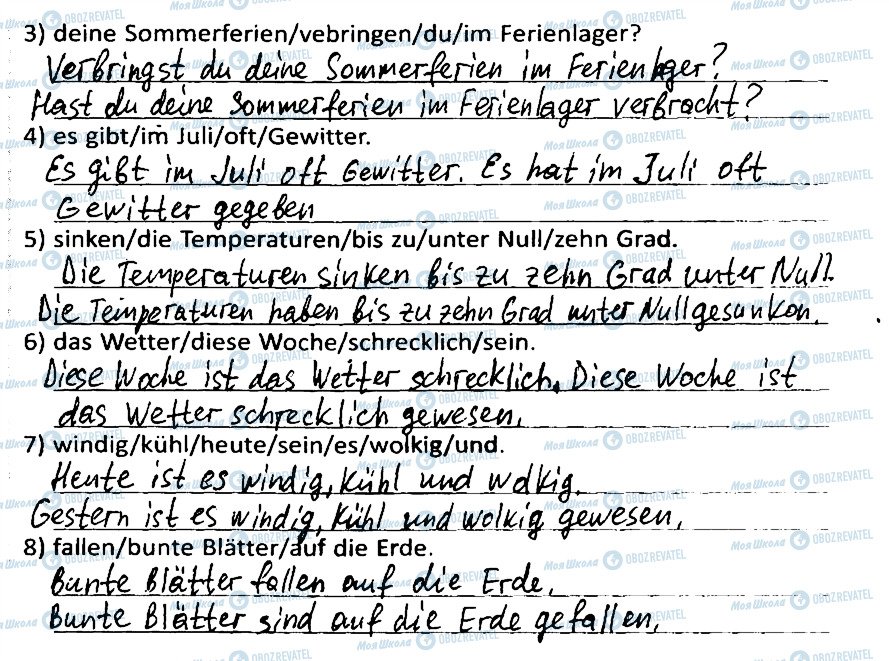 3) deine Sommerferien/vebringen/du/im Ferienlager?
Verbringst du deine Sommerferien im Ferienlager?
Hast du deine Sommerferien im Ferienlager verbracht?
4) es gibt/im Juli/oft/Gewitter.
Es gibt im Juli oft Gewitter. Es hat im Juli oft
Gewitter gegeben
5) sinken/die Temperaturen/bis zu/unter Null/zehn Grad.
Die Temperaturen sinken bis zu zehn Grad unter Null.
Die Temperaturen haben bis zu zehn Grad unter Null gesunken.
6) das Wetter/diese Woche/schrecklich/sein.
Diese Woche ist das Wetter schrecklich. Diese Woche ist
das Wetter schrecklich gewesen.
7) windig/kühl/heute/sein/es/wolkig/und.
Heute ist es windig, kühl und wolkig.
Gestern ist es windig, kühl und wolkig gewesen.
8) fallen/bunte Blätter/auf die Erde.
Bunte Blätter fallen auf die Erde.
Bunte Blätter sind auf die Erde gefallen.